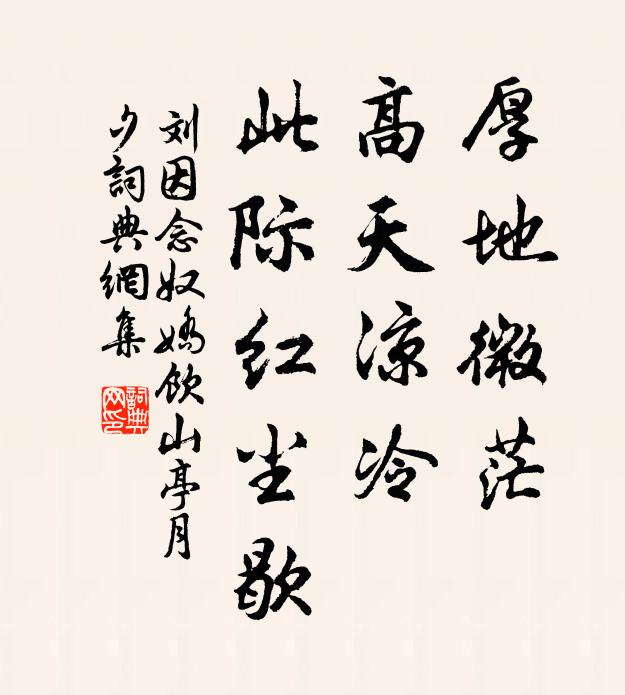 厚地微茫
高天凉冷
此际红尘歇
刘因念奴娇饮山亭月
夕詞典網集
詞典网印